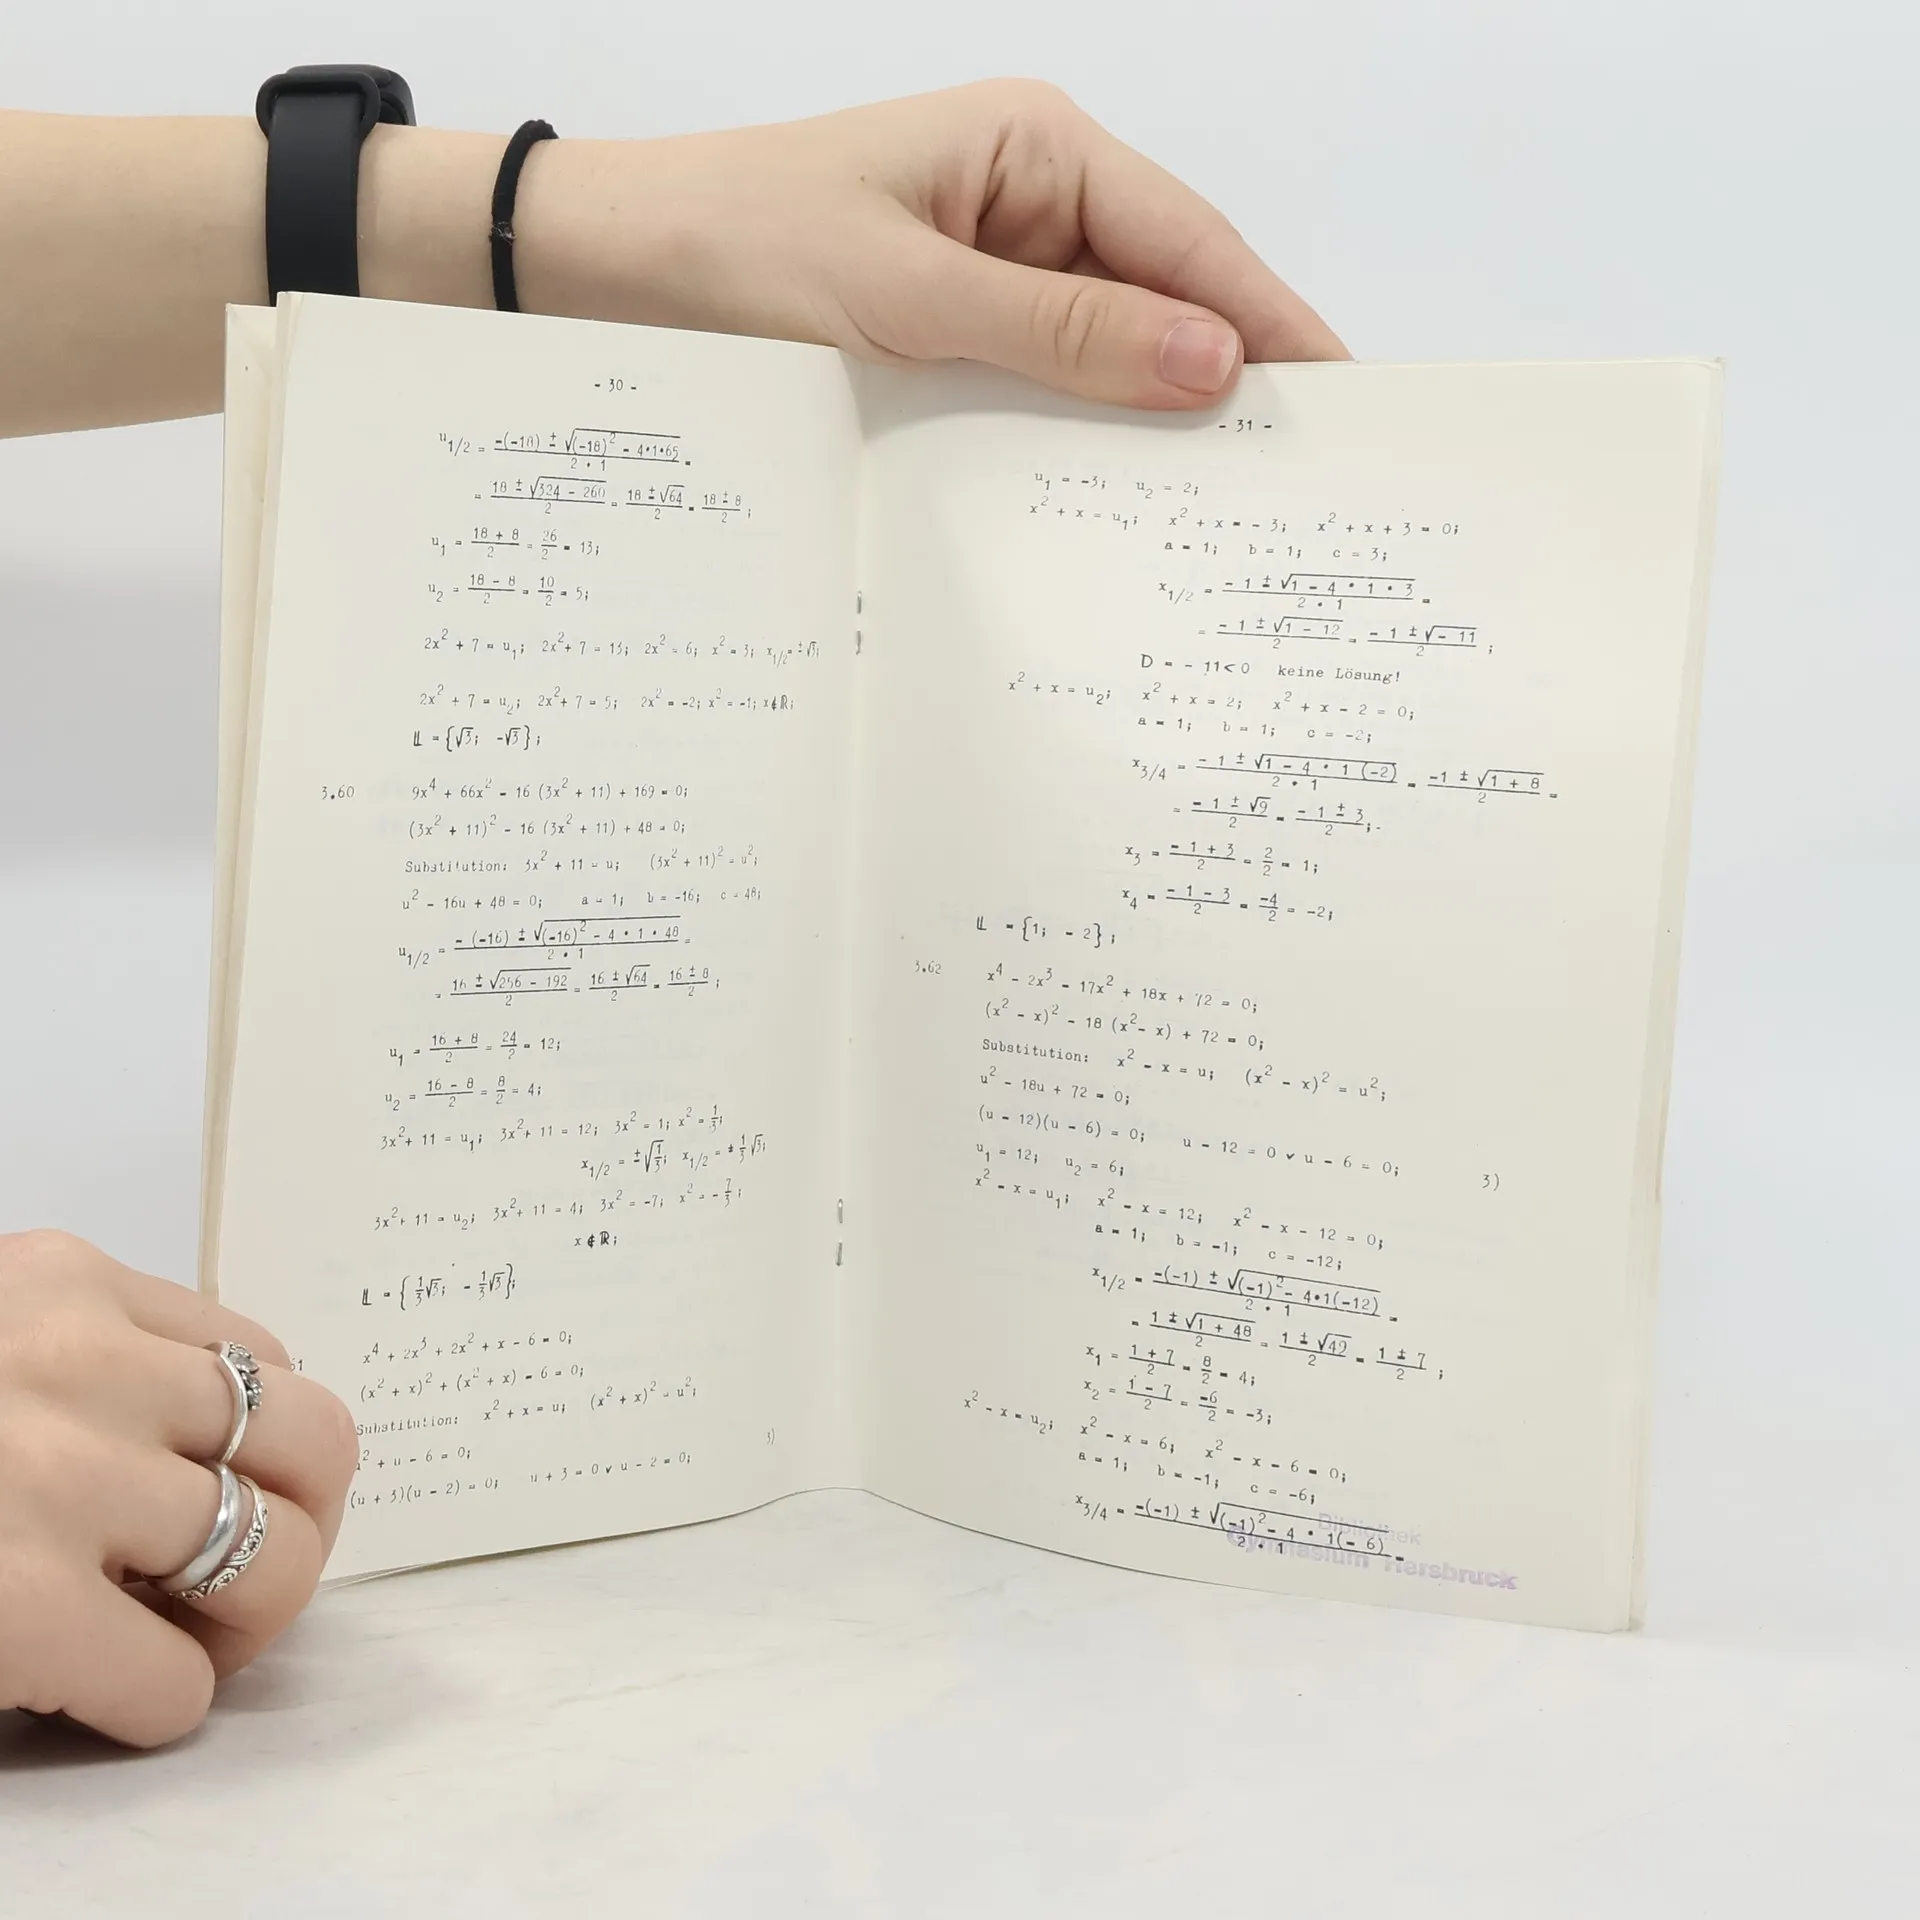 - 30 -
u1/2 = (-(-18) ± √((-18)² - 4·1·65))/(2 · 1) =
= (18 ± √(324 - 260))/2 = (18 ± √64)/2 = (18 ± 8)/2 ;
u1 = (18 + 8)/2 = 26/2 = 13;
u2 = (18 - 8)/2 = 10/2 = 5;
2x² + 7 = u1; 2x² + 7 = 13; 2x² = 6; x² = 3; x1/2 = ±√3;
2x² + 7 = u2; 2x² + 7 = 5; 2x² = -2; x² = -1; x ∉ ℝ;
𝕃 = {√3; -√3};
3.60 9x⁴ + 66x² - 16 (3x² + 11) + 169 = 0;
(3x² + 11)² - 16 (3x² + 11) + 48 = 0;
Substitution: 3x² + 11 = u; (3x² + 11)² = u²;
u² - 16u + 48 = 0; a = 1; b = -16; c = 48;
u1/2 = (-(-16) ± √((-16)² - 4 · 1 · 48))/(2 · 1) =
= (16 ± √(256 - 192))/2 = (16 ± √64)/2 = (16 ± 8)/2 ;
u1 = (16 + 8)/2 = 24/2 = 12;
u2 = (16 - 8)/2 = 8/2 = 4;
3x² + 11 = u1; 3x² + 11 = 12; 3x² = 1; x² = 1/3;
x1/2 = ±√(1/3); x1/2 = ± 1/3 √3;
3x² + 11 = u2; 3x² + 11 = 4; 3x² = -7; x² = - 7/3;
x ∉ ℝ;
𝕃 = {1/3 √3; - 1/3 √3};
61 x⁴ + 2x³ + 2x² + x - 6 = 0;
(x² + x)² + (x² + x) - 6 = 0;
Substitution: x² + x = u; (x² + x)² = u²;
u² + u - 6 = 0;
(u + 3)(u - 2) = 0; u + 3 = 0 ∨ u - 2 = 0; 3)
- 31 -
u1 = -3; u2 = 2;
x² + x = u1; x² + x = - 3; x² + x + 3 = 0;
a = 1; b = 1; c = 3;
x1/2 = (- 1 ± √(1 - 4 · 1 · 3))/(2 · 1) =
= (- 1 ± √(1 - 12))/2 = (- 1 ± √(- 11))/2 ;
D = - 11 < 0 keine Lösung!
x² + x = u2; x² + x = 2; x² + x - 2 = 0;
a = 1; b = 1; c = -2;
x3/4 = (- 1 ± √(1 - 4 · 1 (-2)))/(2 · 1) = (-1 ± √(1 + 8))/2 =
= (- 1 ± √9)/2 = (- 1 ± 3)/2 ;
x3 = (- 1 + 3)/2 = 2/2 = 1;
x4 = (- 1 - 3)/2 = -4/2 = -2;
𝕃 = {1; - 2};
3.62 x⁴ - 2x³ - 17x² + 18x + 72 = 0;
(x² - x)² - 18 (x² - x) + 72 = 0;
Substitution: x² - x = u; (x² - x)² = u²;
u² - 18u + 72 = 0;
(u - 12)(u - 6) = 0; u - 12 = 0 ∨ u - 6 = 0; 3)
u1 = 12; u2 = 6;
x² - x = u1; x² - x = 12; x² - x - 12 = 0;
a = 1; b = -1; c = -12;
x1/2 = (-(-1) ± √((-1)² - 4·1(-12)))/(2 · 1) =
= (1 ± √(1 + 48))/2 = (1 ± √49)/2 = (1 ± 7)/2 ;
x1 = (1 + 7)/2 = 8/2 = 4;
x2 = (1 - 7)/2 = -6/2 = -3;
x² - x = u2; x² - x = 6; x² - x - 6 = 0;
a = 1; b = -1; c = -6;
x3/4 = (-(-1) ± √((-1)² - 4 · 1(- 6)))/(2 · 1) =
Bibliothek
Gymnasium Hersbruck